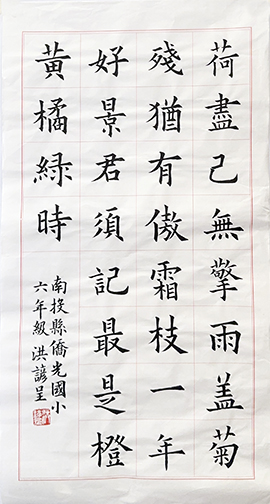 荷盡已無擎雨盖菊
殘猶有傲霜枝一年
好景君須記最是橙
黃橘綠時
南投縣僑光國小
六年級 洪諺呈